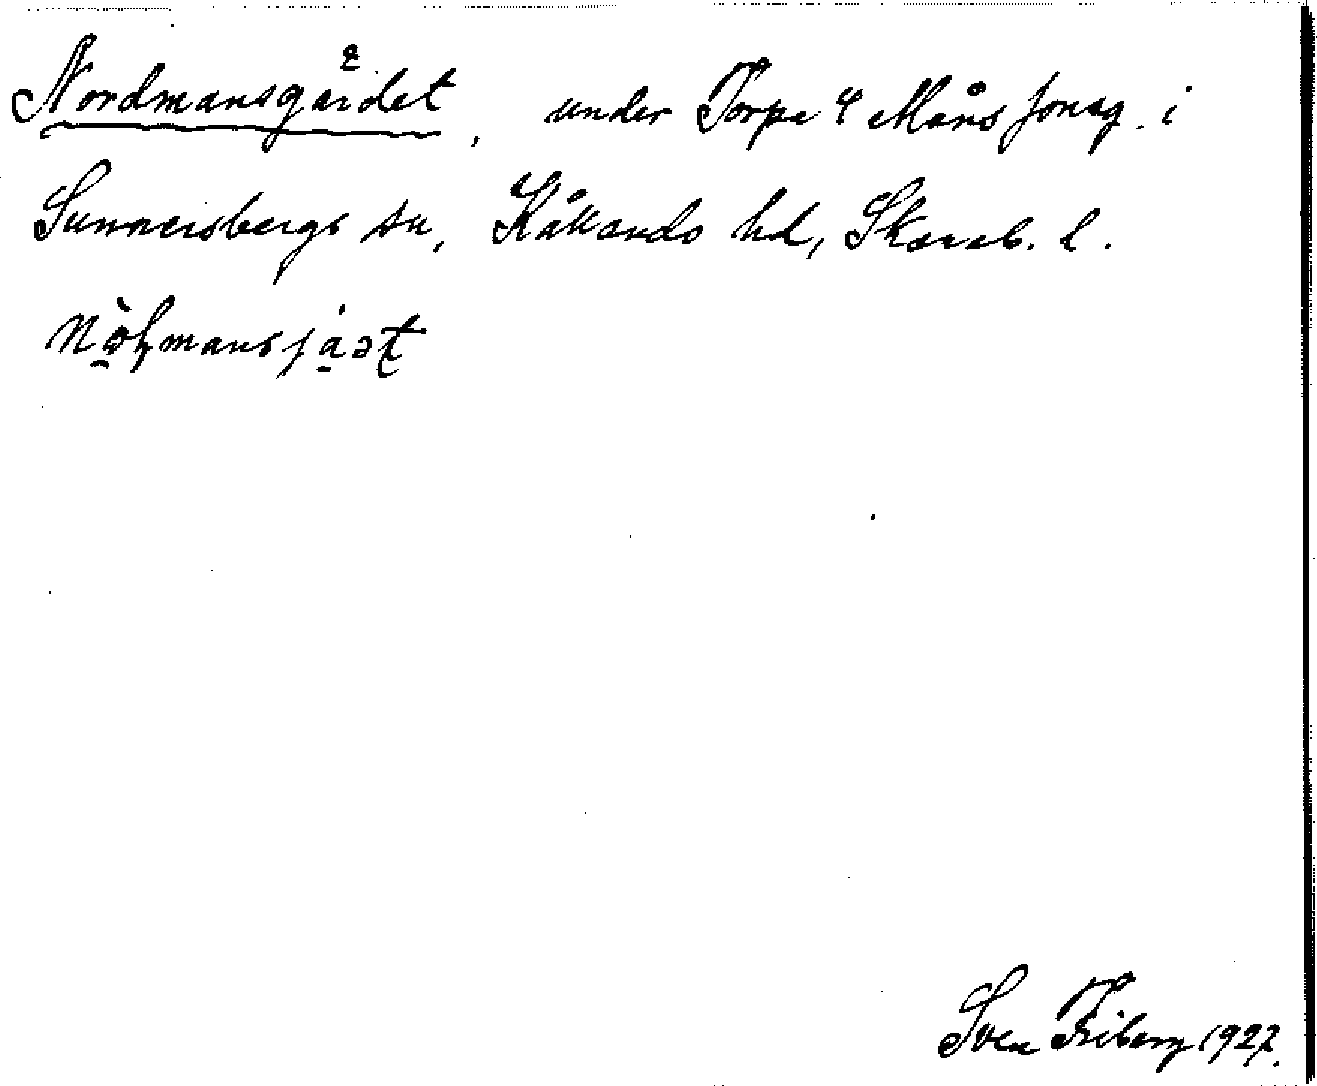 Nordmansgärdet, under Torpa 4 Måns Jonsg. i
Sunnersbergs sn, Kållands hd, Skarab. l.
Sven Friberg 1927.